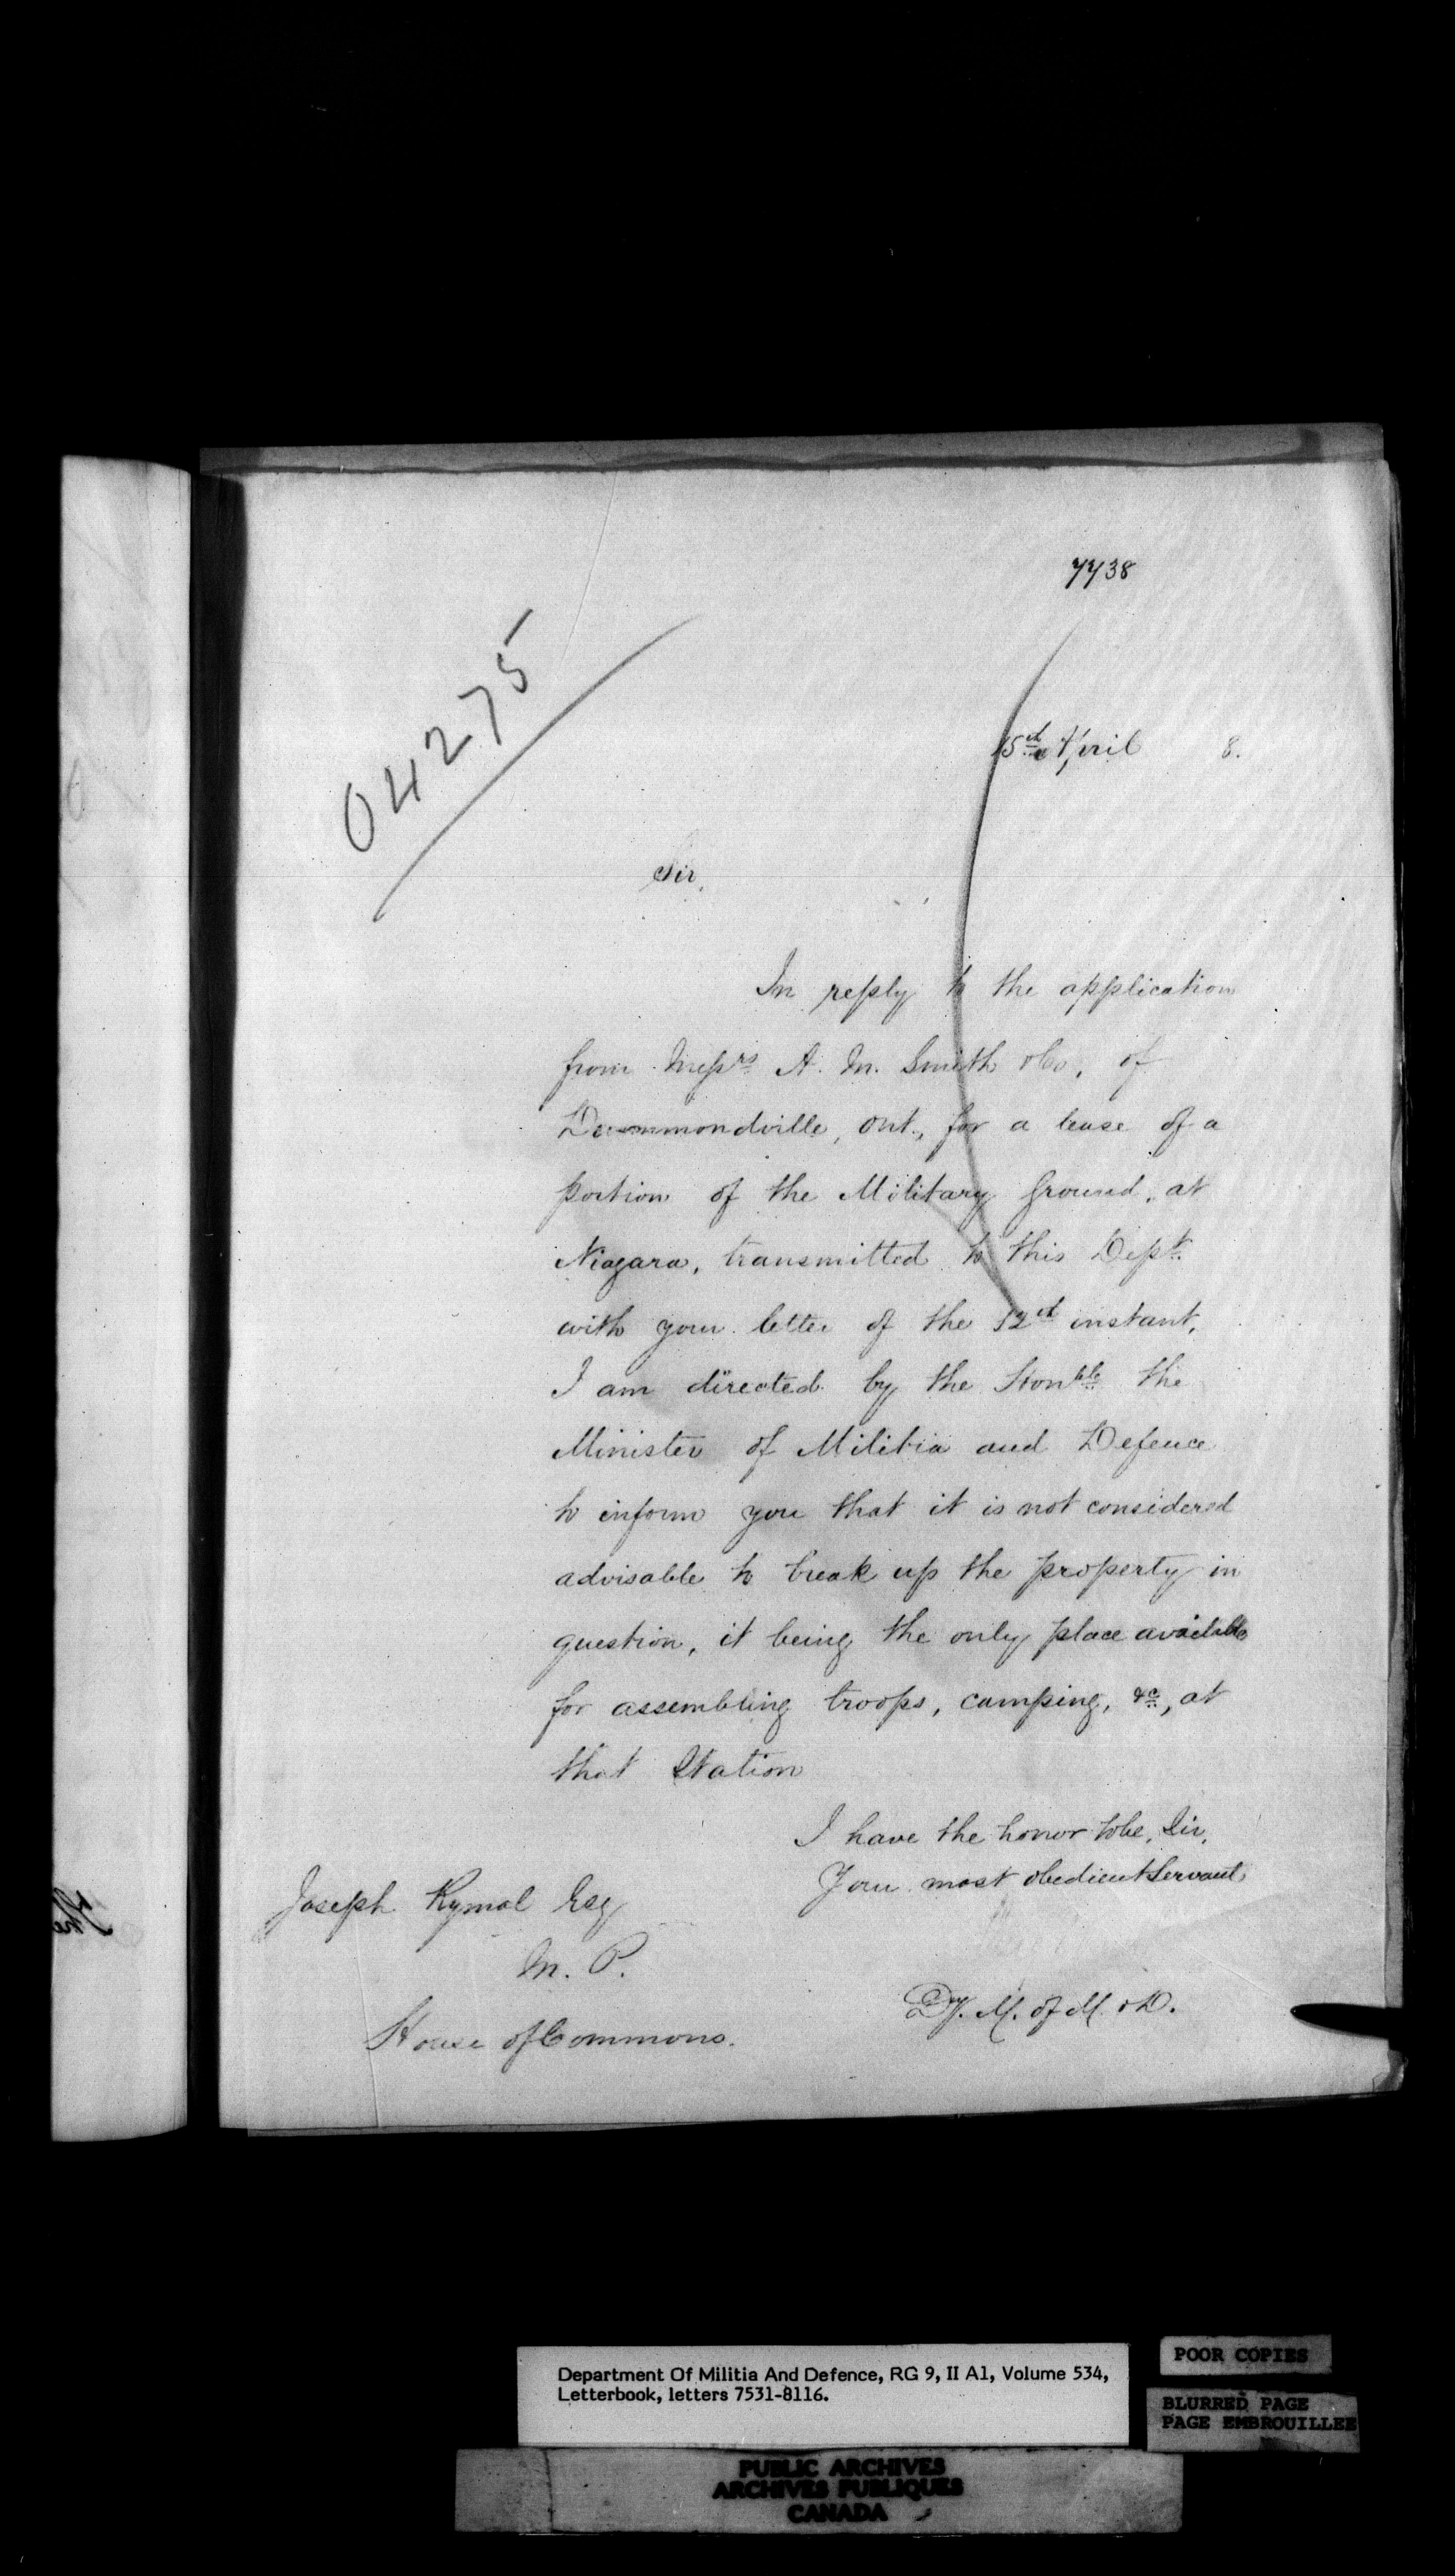 7738
04275
15th April 8.
Sir,
In reply to the application
from Messrs A. M. Smith &Co, of
Drummondville, Ont., for a lease of a
portion of the Military Ground, at
Niagara, transmitted to this Dept.
with your letter of the 12th instant,
I am directed by the Honble the
Minister of Militia and Defence
to inform you that it is not considered
advisable to break up the property in
question, it being the only place available
for assembling troops, camping, &c, at
that Station
I have the honor to be, Sir,
Your most obedient Servant
Joseph Rymal Esq
M. P.
House of Commons.
Dy. M. of M. &D.
The
Department Of Militia And Defence, RG 9, II A1, Volume 534,
Letterbook, letters 7531-8116.
POOR COPIES
BLURRED PAGE
PAGE EMBROUILLEE
PUBLIC ARCHIVES
ARCHIVES PUBLIQUES
CANADA